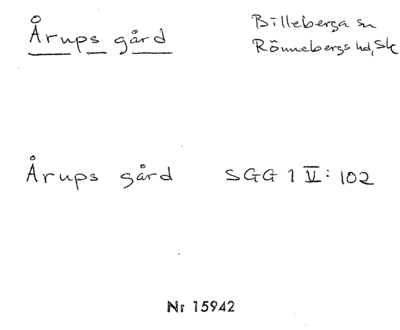 Årups gård
Billeberga sn
Rönnebergs hd, Sk
Årups gård SGG 1 V: 102
Nr 15942